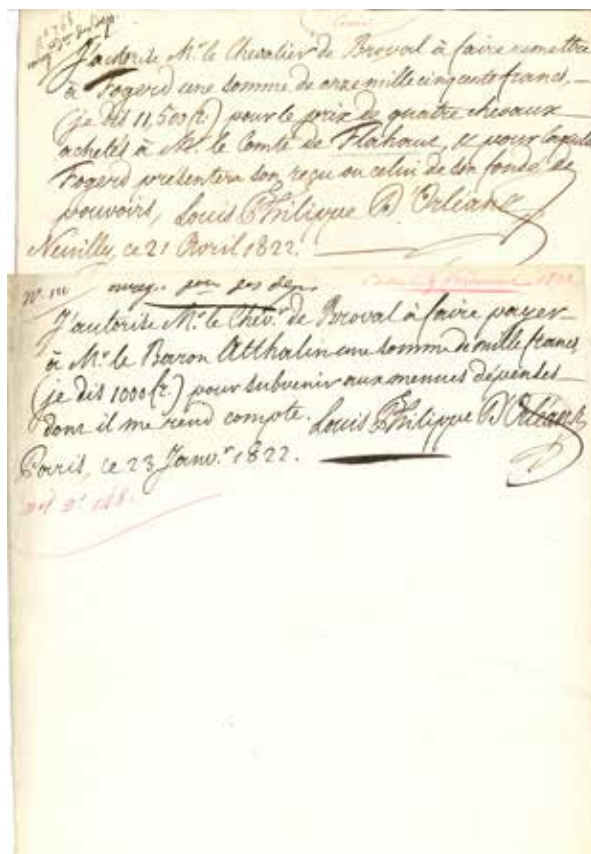 J'autorise M.r le Chevalier de Broval à faire remettre
à Fogerd une somme de onze mille cinq cents francs,
(je dis 11,500 fr.) pour le prix de quatre chevaux
achetés à M.r le Comte de Flahaut, et pour laquelle
Fogerd présentera son reçu ou celui de son fondé de
pouvoirs, Louis Philippe D'Orléans
Neuilly, ce 21 Avril 1822.
J'autorise M.r le Chev.r de Broval à faire payer
à M.r le Baron Atthalin une somme de mille francs
(je dis 1000 fr.) pour subvenir aux menues dépenses
dont il me rend compte. Louis Philippe D'Orléans
Paris, ce 23 Janv.r 1822.